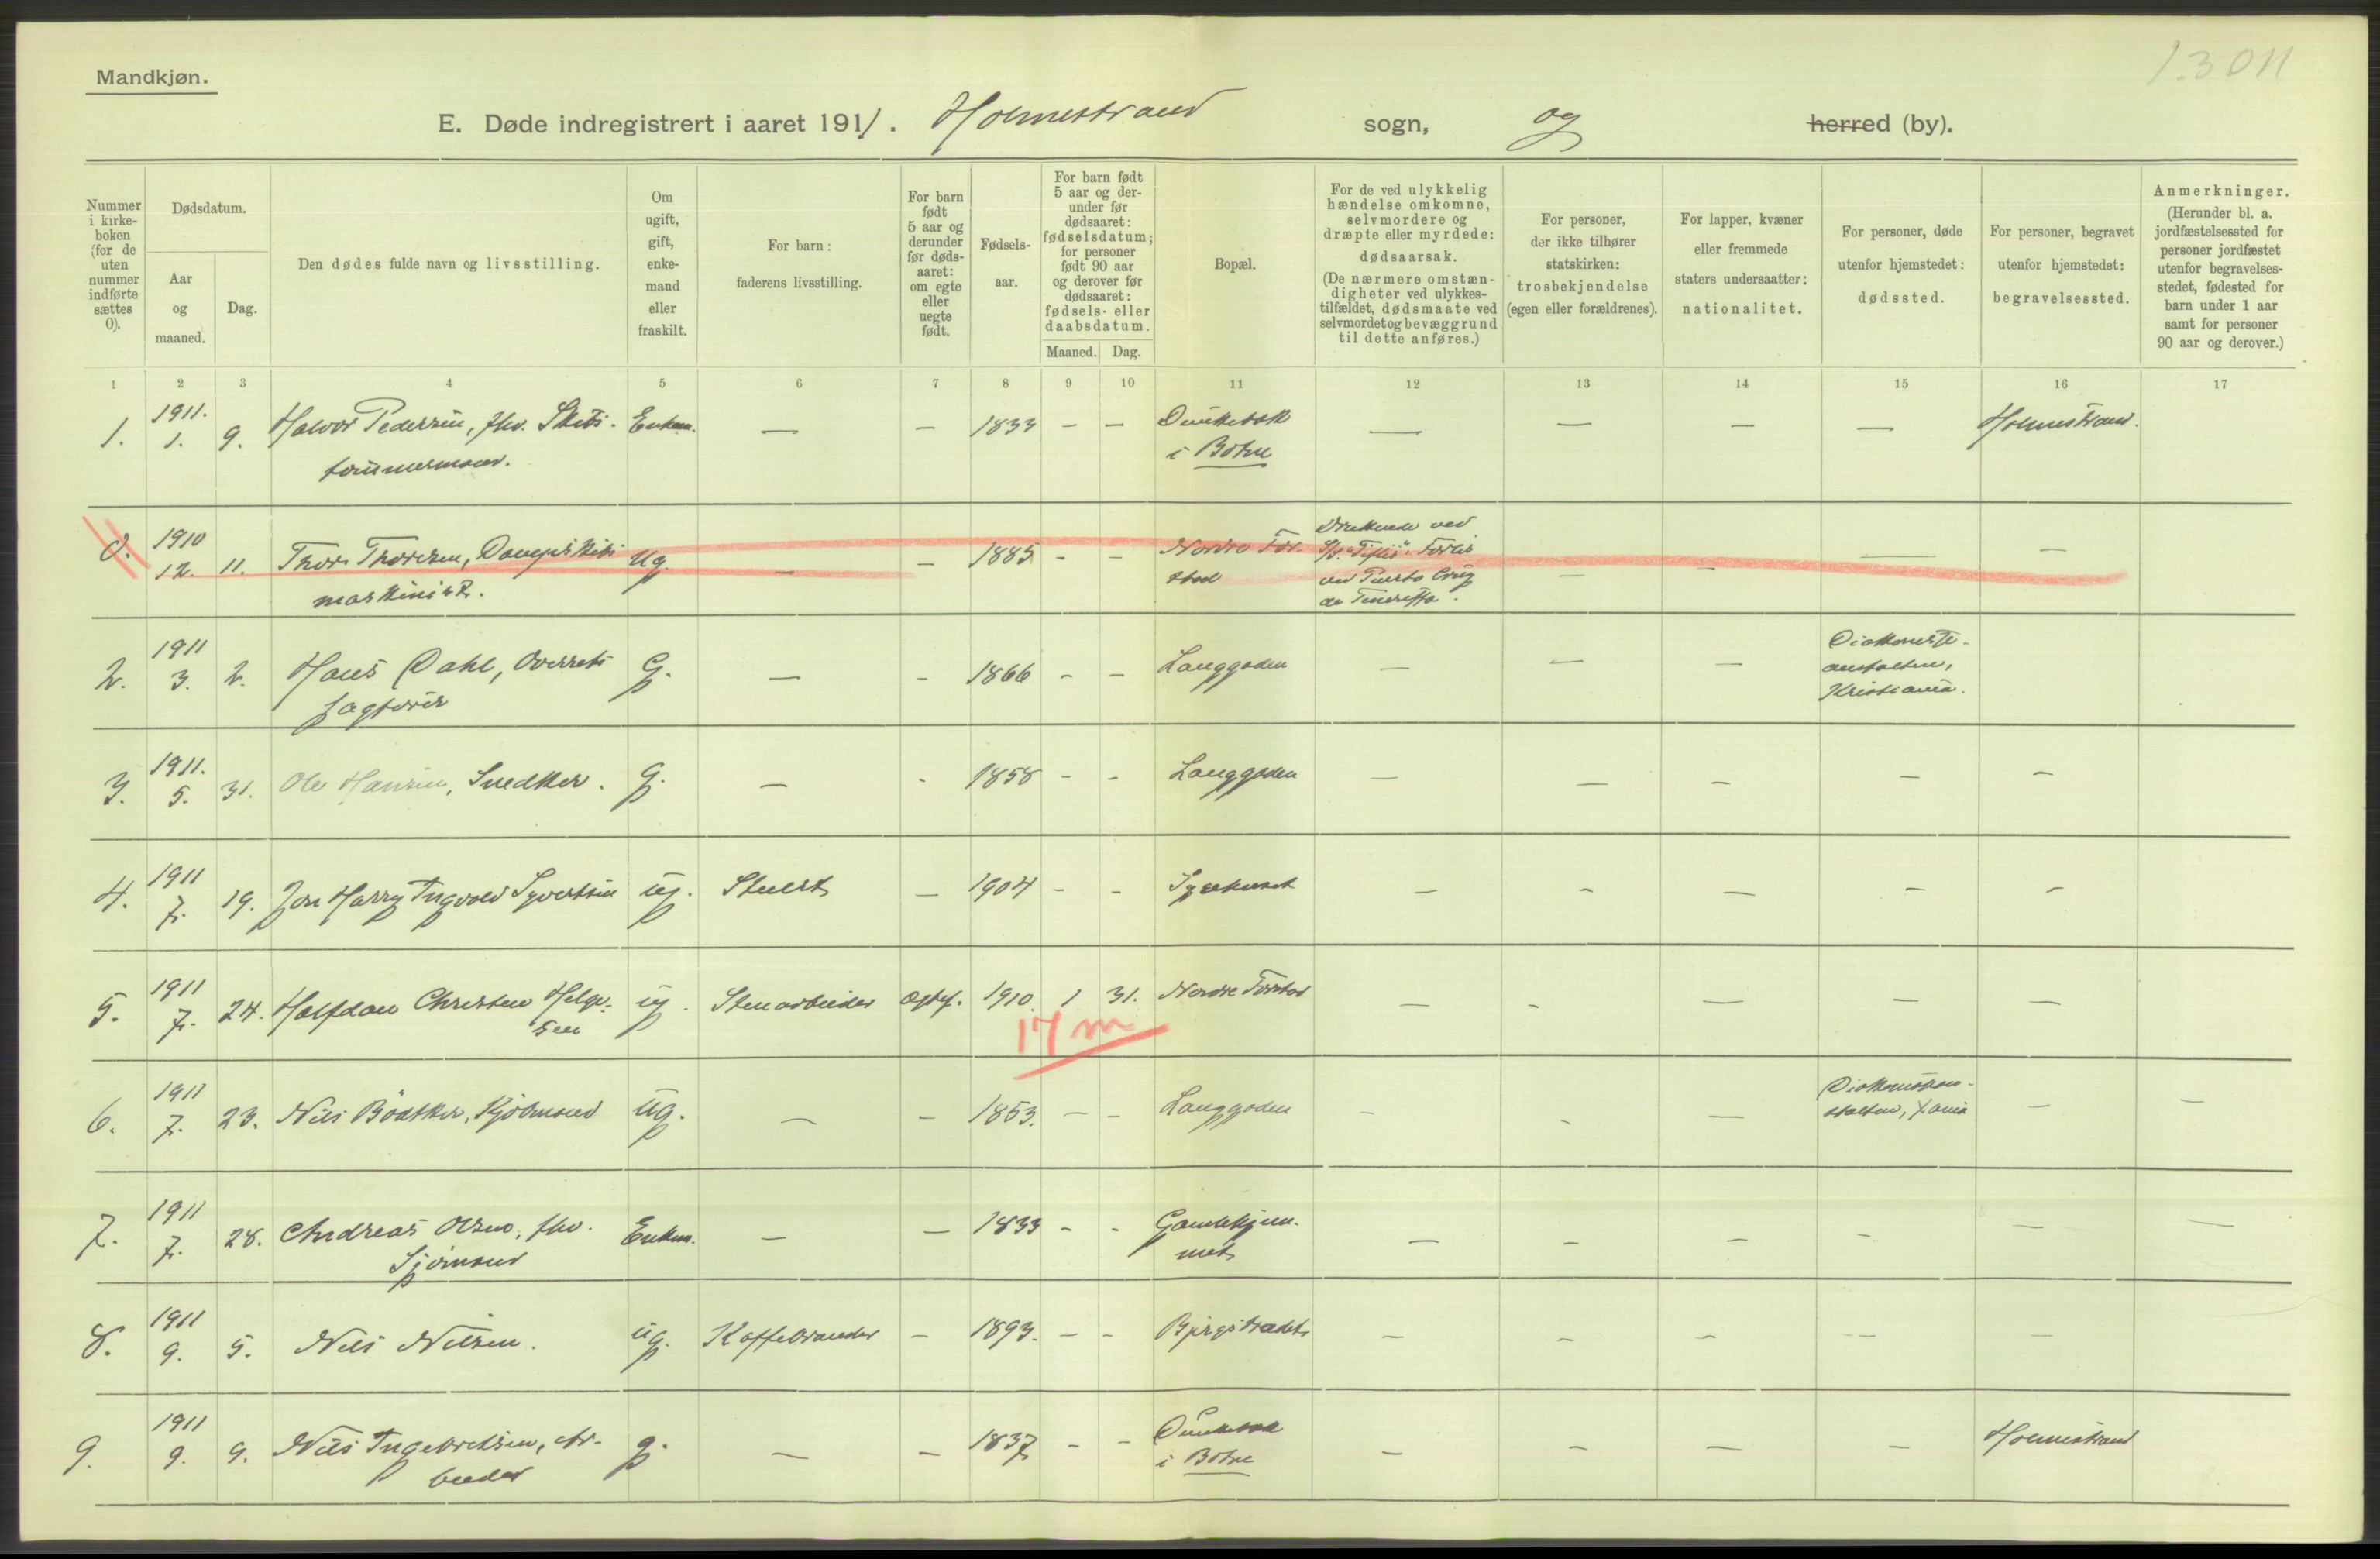 Mandkjøn.
13011
E. Døde indregistrert i aaret 1911. Holmestrand sogn, og herred (by).
Nummer i kirke- boken (for de uten nummer indførte sættes 0).
Dødsdatum.
Aar og maaned.
Dag.
Den dødes fulde navn og livsstilling.
Om ugift, gift, enke- mand eller fraskilt.
For barn: faderens livsstilling.
For barn født 5 aar og derunder før døds- aaret: om egte eller uegte født.
Fødsels- aar.
For barn født 5 aar og der- under før dødsaaret: fødselsdatum; for personer født 90 aar og derover før dødsaaret: fødsels- eller daabsdatum.
Maaned. Dag.
Bopæl.
For de ved ulykkelig hændelse omkomne, selvmordere og dræpte eller myrdede: dødsaarsak.
(De nærmere omstæn- digheter ved ulykkes- tilfældet, dødsmaate ved selvmordet og bevæggrund til dette anføres.)
For personer, der ikke tilhører statskirken: trosbekjendelse (egen eller forældrenes).
For lapper, kvæner eller fremmede staters undersaatter: nationalitet.
For personer, døde utenfor hjemstedet: dødssted.
For personer, begravet utenfor hjemstedet: begravelsessted.
Anmerkninger.
(Herunder bl. a. jordfæstelsessted for personer jordfæstet utenfor begravelses- stedet, fødested for barn under 1 aar samt for personer 90 aar og derover.)
1 2 3 4 5 6 7 8 9 10 11 12 13 14 15 16 17
1. 1911. 1. 9. Halvor Pedersen, fhv. Skibs- Enkem. — — 1833 - - Dunkebæk — — — — Holmestrand.
tømmermand. i Botne
0. 1910 12. 11. Thor Thoresen, Dampskibs Ug. — — 1885 - - Nordre For- Druknede ved — — — —
maskinist. stad S/S "Tiflis"s Forlis
ved Puerto Cruz
de Teneriffa.
2. 1911 3. 2. Hans Dahl, Overrets G. — - 1866 - - Langgaden — — — Diakonisse-
sagfører anstalten,
Kristiania.
3. 1911. 5. 31. Ole Hansen, Snedker. G. — - 1858 - - Langgaden — — — — —
4. 1911 7. 19. Jon Harry Ingvald Syvertsen ug. Stuert — 1904 - - Sygehuset — - — - -
5. 1911 7. 24. Halfdan Christian Helge- ug. Stenarbeider Egtef. 1910. 1 31. Nordre Forstad — - — — —
sen
17 m
6. 1911 7. 23. Nils Bödtker, Kjøbmand Ug. — - 1853. - - Langgaden - - — Diakonissean- — —
stalten, Xania
7. 1911 7. 28. Andreas Olsen, fhv. Enkem. — — 1833 - - Gamlehjem- — — — - — —
Sjømand met
8. 1911 9. 5. Nils Nilsen. ug. Kaffebrænder - 1893. - - Bjergstrædet — - - -- —
9. 1911 9. 9. Nils Ingebretsen, Ar- g. — — 1837 - - Dunkebæk — — — — Holmestrand
beider i Botne